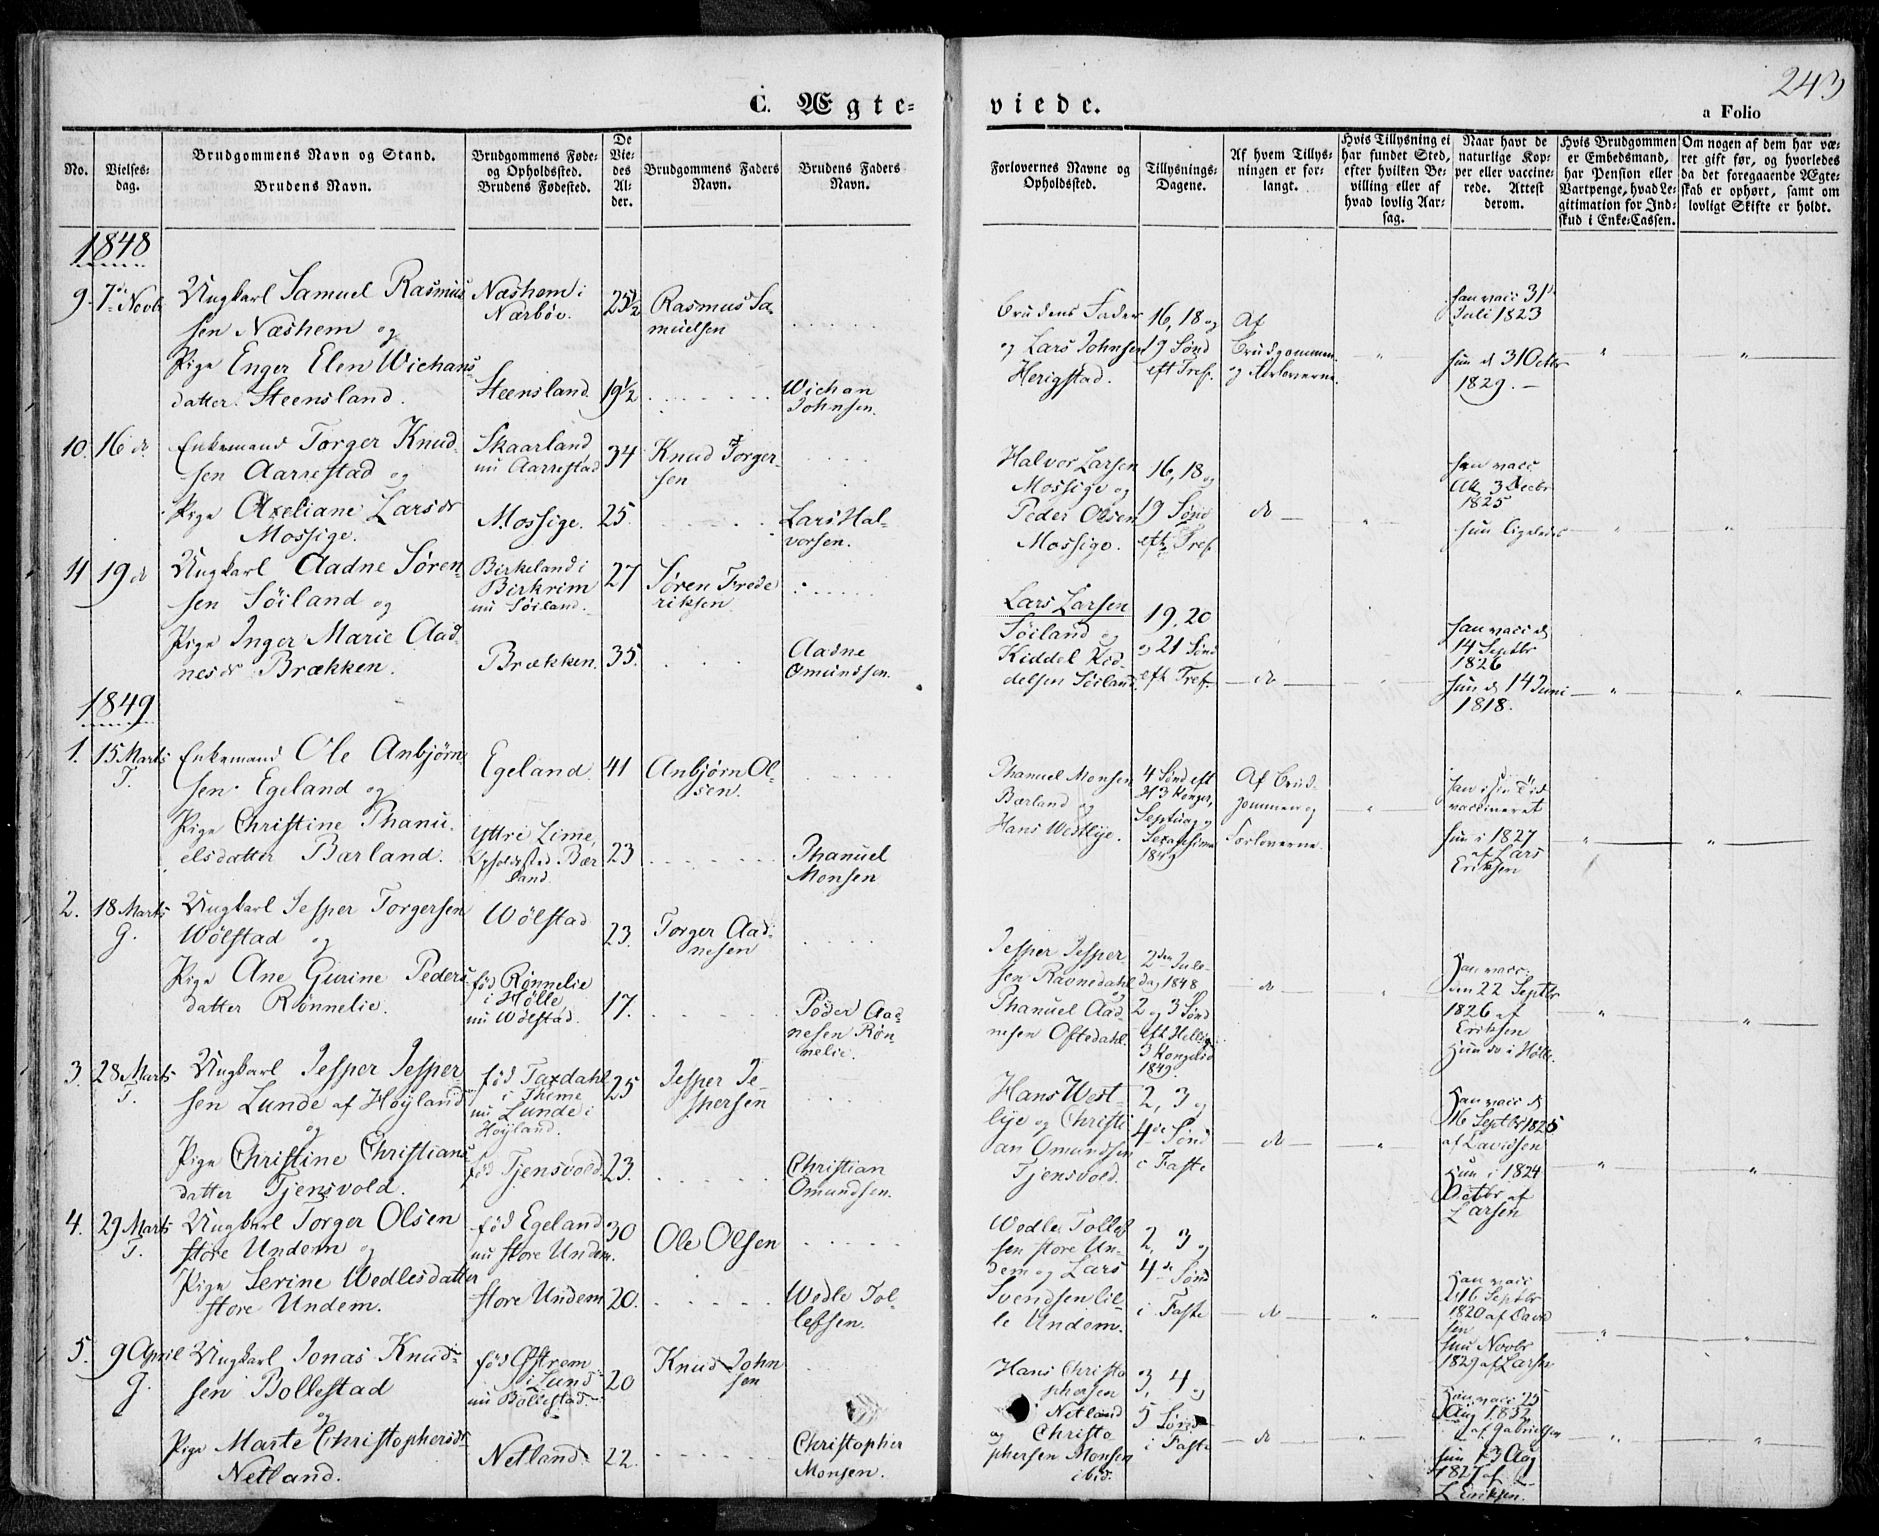 243
C. Ægte-
viede.
a Folio
No.
Vielses-
dag.
Brudgommens Navn og Stand.
Brudens Navn.
Brudgommens Føde-
og Opholdssted.
Brudens Fødested.
De
Vie-
des
Al-
der.
Brudgommens Faders
Navn.
Brudens Faders
Navn.
Forlovernes Navne og
Opholdssted.
Tillysnings-
Dagene.
Af hvem Tillys-
ningen er for-
langt.
Hvis Tillysning ei
har fundet Sted,
efter hvilken Be-
villing eller af
hvad lovlig Aar-
sag.
Naar havt de
naturlige Kop-
per eller vaccine-
rede. Attest
derom.
Hvis Brudgommen
er Embedsmand,
har Pension eller
Vartpenge, hvad Le-
gitimation for Ind-
skud i Enke-Cassen.
Om nogen af dem har væ-
ret gift før, og hvorledes
da det foregaaende Ægte-
skab er ophørt, samt om
lovligt Skifte er holdt.
1848
9. 7de Novbr
Ungkarl Samuel Rasmus
sen Næshem og
Pige Enger Elen Wichans
datter Steensland.
Næshem i
Nærbøe.
Steensland.
25½
19½
Rasmus Sa-
muelsen
Wichan
Johnsen.
Brudens Fader
og Lars Johnsen
Herigstad.
16, 18 og
19 Sønd
eft Tref.
Af
Brudgommen
og Forloverne.
han vacc 31
Juli 1823
hun d 31 Octbr
1829.
10. 16 do
Enkemand Torger Knud-
sen Aarrestad og
Pige Axeliane Larsdr
Mossige.
Skaarland
nu Aarrestad
Mossige.
34
25.
Knud Torger-
sen
Lars Hal-
vorsen.
Halvor Larsen
Mossige og
Peder Olsen
Mossige.
16, 18 og
19 Sønd
eft Tref.
do
han vacc
3 Decbr
1825
hun ligeledes
11 19 do
Ungkarl Aadne Søren-
sen Søiland og
Pige Inger Marie Aad
nesdr Brækken.
Birkeland i
Birkrim
nu Søiland.
Brækken.
27
35.
Søren Frede
riksen.
Aadne
Omundsen.
Lars Larsen
Søiland og
Kiddel Kid-
delsen Søiland.
19, 20
og 21 Sønd
eft Tref.
do
han vacc d
14 Septbr
1826
hun d 14 Juni
1818.
1849
1. 15 Marts
T.
Enkemand Ole Anbjørn-
sen Egeland og
Pige Christine Thanu-
elsdatter Bærland.
Egeland.
Yttre Lime,
Opholdsted Bær
land.
41
23
Anbjørn Ol-
sen.
Thanuel
Monsen
Thanuel Monsen
Bærland og
Hans Westlye.
4 Sønd eft
H 3 Konger,
Septuag og
1849
Af Brud-
gommen og
Forloverne.
han i sin Tid
vaccineret
hun i 1827
af Lars
Eriksen
2. 18 Marts
G.
Ungkarl Jesper Torgersen
Wølstad og
Pige Ane Gurine Peders
datter Rønnelie.
Wølstad
fød Rønnelie
i Hølle
nu Wølstad.
23.
17.
Torger Aad-
nesen
Peder Aad
nesen Røn
nelie.
Jesper Jesper-
sen Ravnedahl
og
Thanuel Aad
nesen Oftedahl.
2den Jule-
dag 1848
2 og 3 Sønd
eft Hellig
3 Kongers
1849.
do
Han vacc
den 22 Septbr
1826 af
Eriksen
Hun do i Hølle.
3. 28 Marts
T.
Ungkarl Jesper Jesper-
sen Lunde af Høyland
og
Pige Christine Christians
datter Tjensvold.
fød Taxdahl
i Thime
nu Lunde i
Høyland.
fød Tjensvold.
25
23.
Jesper Je-
spersen
Christian
Omundsen.
Hans West-
lye og Christi
an Omundsen
Tjensvold.
2, 3 og
4de Sønd
i Faste
do
Han vacc d
16 Septbr 1825
af Davidsen
Hun i 1824
Octbr af
Larsen
4. 29 Marts
T.
Ungkarl Torger Olsen
store Undem og
Pige Serine Wedlesdatter
store Undem.
fød Egeland
nu store Undem.
store Undem
30
20.
Ole Olsen
Wedle Tol-
lefsen.
Wedle Tollef
sen store Un-
dem og Lars
Svendsen lil-
le Undem.
2, 3 og
4de Sønd
i Faste
do
Han vacc
16 Septbr
1820 af David
sen
hun Novbr
1829 af Larsen
5. 9 April
G.
Ungkarl Jonas Knud-
sen Bollestad
og
Pige Marte Christophersdr
Netland.
fød Østrem
i Lund
nu Bollestad.
Netland.
20
22.
Knud John
sen
Christopher
Monsen.
Hans Christo
phersen
Netland
og Christo
phersen Monsen
ibid.
3, 4 og
5 Sønd
i Faste
do
Han vacc 25
Aug 1832
af Gabrielsen
hun 23 Aug
1827 af
L Eriksen.